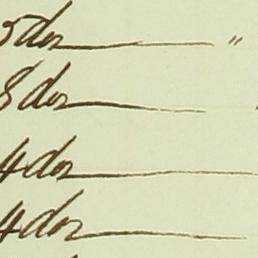 5 doz ——— "
8 doz ———
4 doz ———
4 doz ———